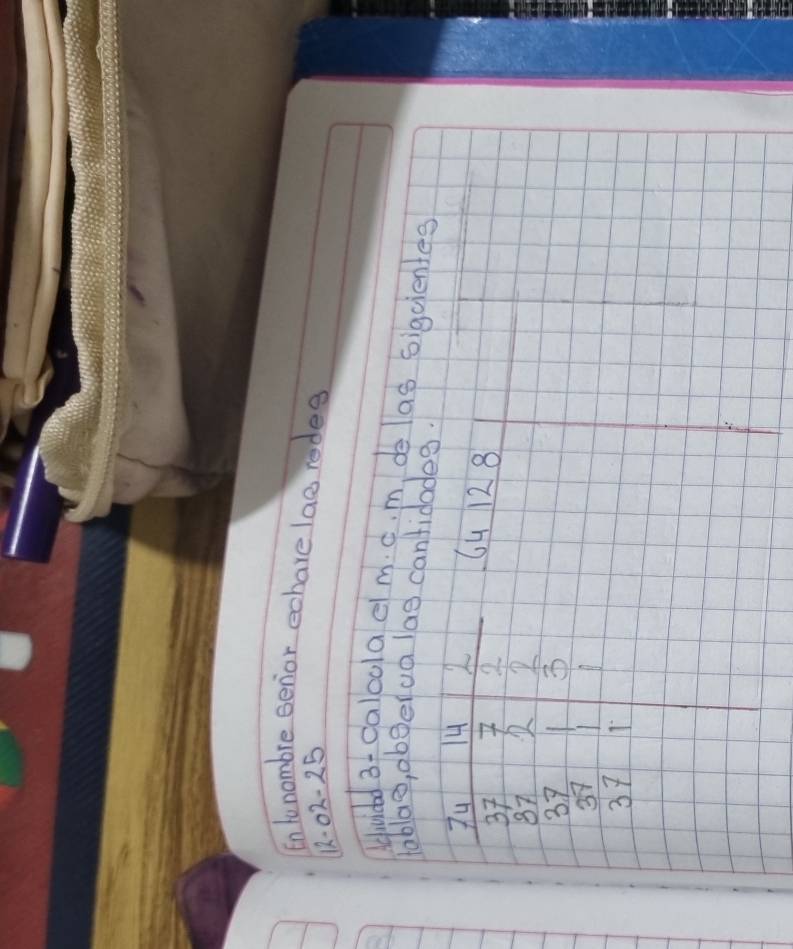 En tu nombre señor echare las redes
12-02-25
Actividad 3-calcula el m.c.m de las siguientes
tablas, observa las cantidades.
74 14 2
37 7 2
37 2 2
37 1 3
37 1 1
37 1
64 128